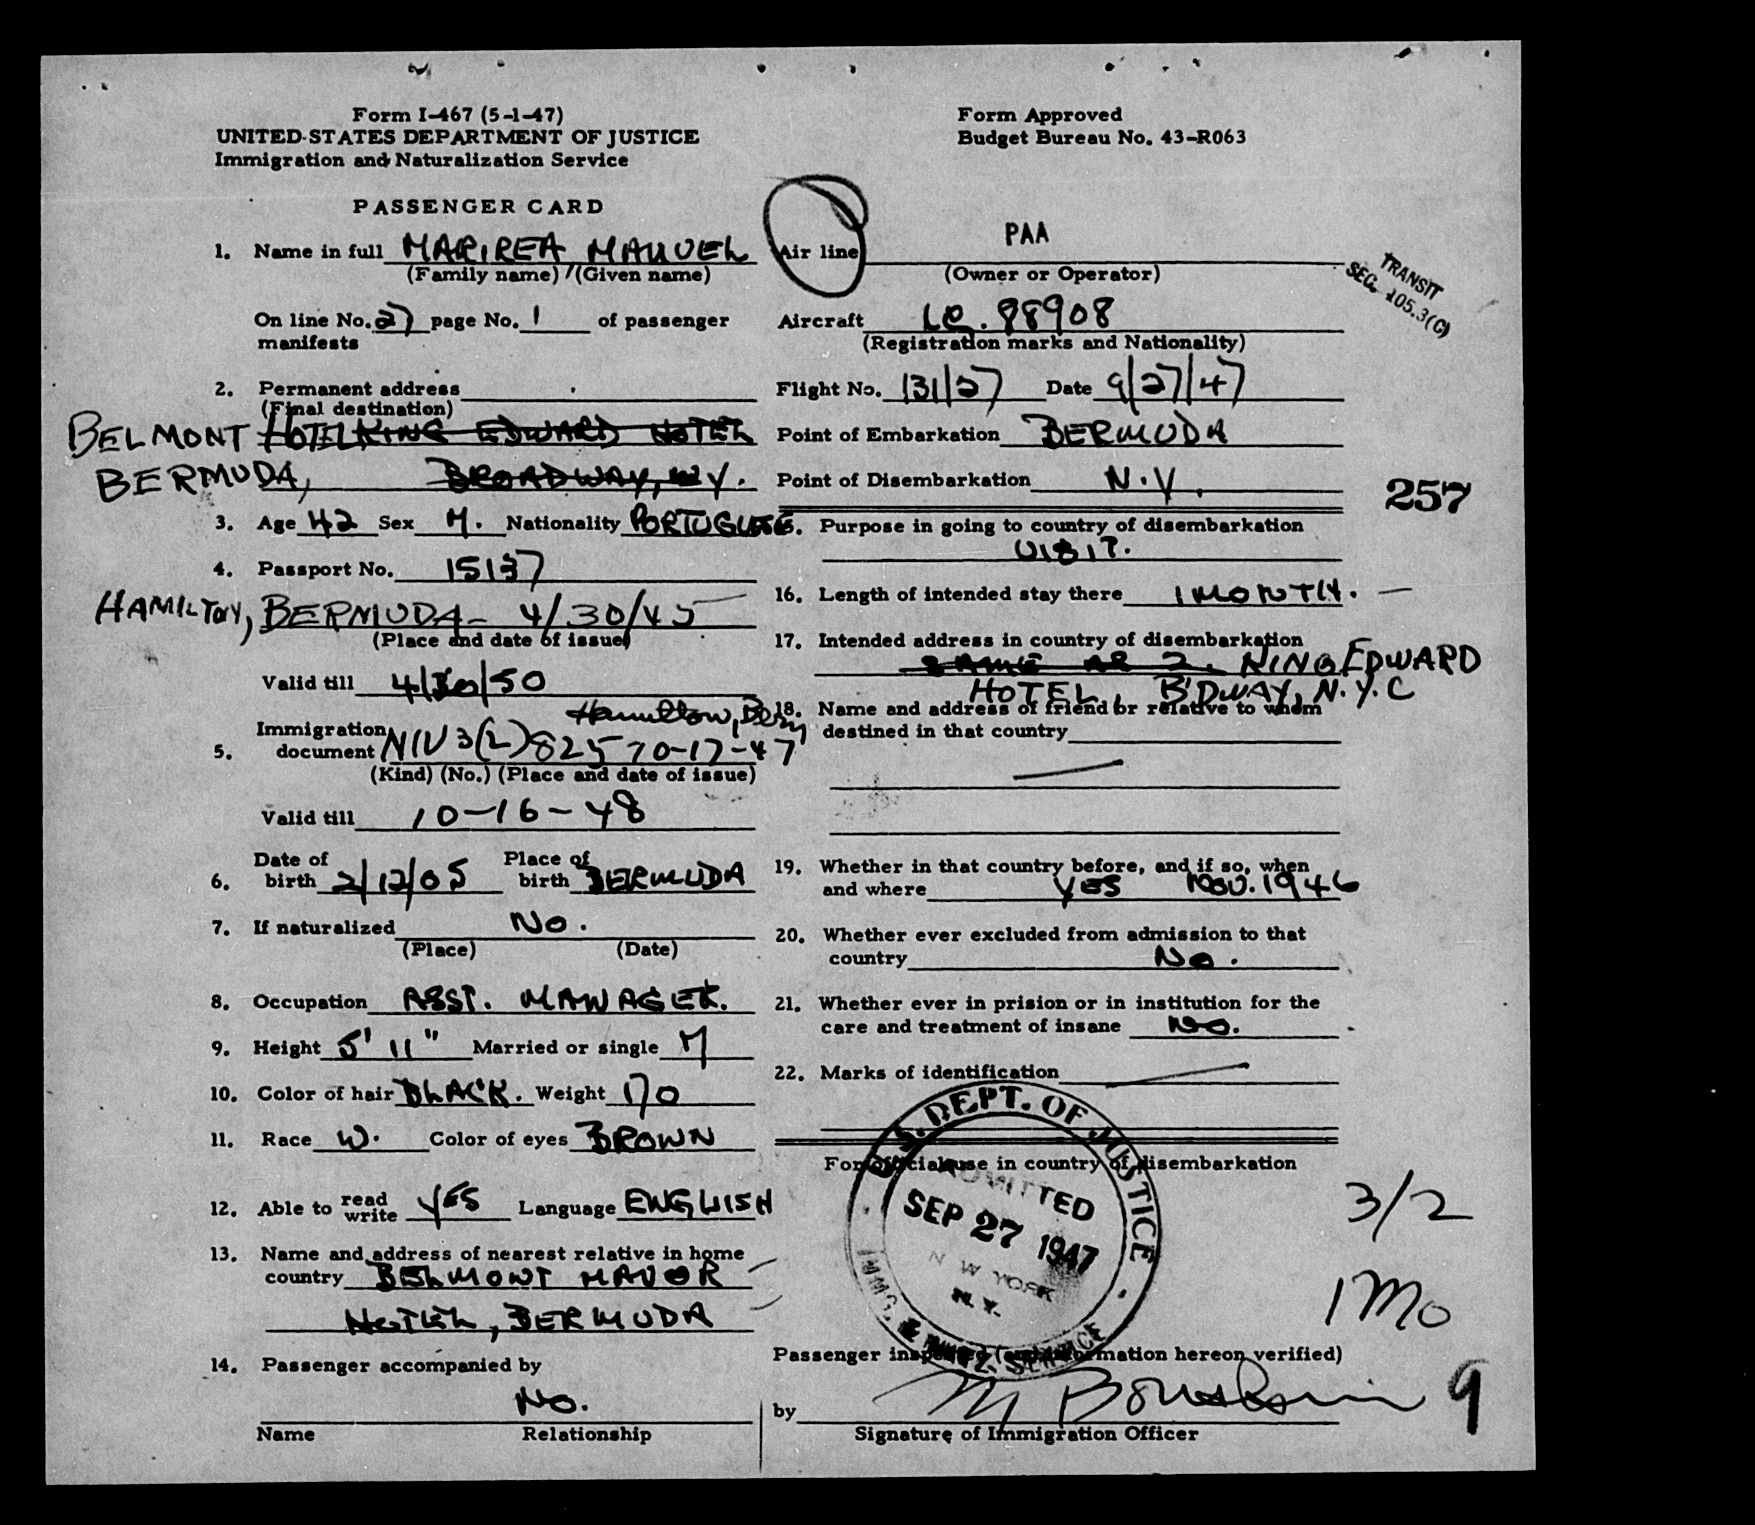 Form I-467 (5-1-47)
UNITED STATES DEPARTMENT OF JUSTICE
Immigration and Naturalization Service
Form Approved
Budget Bureau No. 43-R063
PASSENGER CARD
1. Name in full MARIREA MANUEL
(Family name) / (Given name)
On line No. 27 page No. 1 of passenger
manifests
2. Permanent address
(Final destination)
BELMONT HOTEL KING EDWARD HOTEL
BERMUDA, BROADWAY, NY.
3. Age 42 Sex M. Nationality PORTUGUESE
4. Passport No. 15137
HAMILTON, BERMUDA - 4/30/45
(Place and date of issue)
Valid till 4/30/50
Hamilton, Berm
Immigration
5. document NIV 3(2) 825 10-17-47
(Kind) (No.) (Place and date of issue)
Valid till 10-16-48
Date of Place of
6. birth 2/12/05 birth BERMUDA
7. If naturalized No.
(Place) (Date)
8. Occupation ASST. MANAGER.
9. Height 5' 11" Married or single M
10. Color of hair BLACK. Weight 170
11. Race W. Color of eyes BROWN
12. Able to read write YES Language ENGLISH
13. Name and address of nearest relative in home
country BELMONT MANOR
HOTEL, BERMUDA
14. Passenger accompanied by
No.
Name Relationship
PAA
Air line
(Owner or Operator)
TRANSIT
SEC. 105.3(G)
Aircraft 88908
(Registration marks and Nationality)
Flight No. 131/27 Date 9/27/47
Point of Embarkation BERMUDA
Point of Disembarkation N.Y.
257
15. Purpose in going to country of disembarkation
VISIT.
16. Length of intended stay there 1 MONTH. —
17. Intended address in country of disembarkation
SAME AS 2. KING EDWARD
HOTEL, B'DWAY, N.Y.C
18. Name and address of friend or relative to whom
destined in that country
—
19. Whether in that country before, and if so, when
and where YES NOV. 1946
20. Whether ever excluded from admission to that
country No.
21. Whether ever in prision or in institution for the
care and treatment of insane No.
22. Marks of identification —
For official use in country of disembarkation
U.S. DEPT. OF JUSTICE
ADMITTED
SEP 27 1947
NEW YORK
N.Y.
IMMG. & NATZ. SERVICE
3/2
1 Mo
Passenger inspected (and information hereon verified)
by M
9
Signature of Immigration Officer